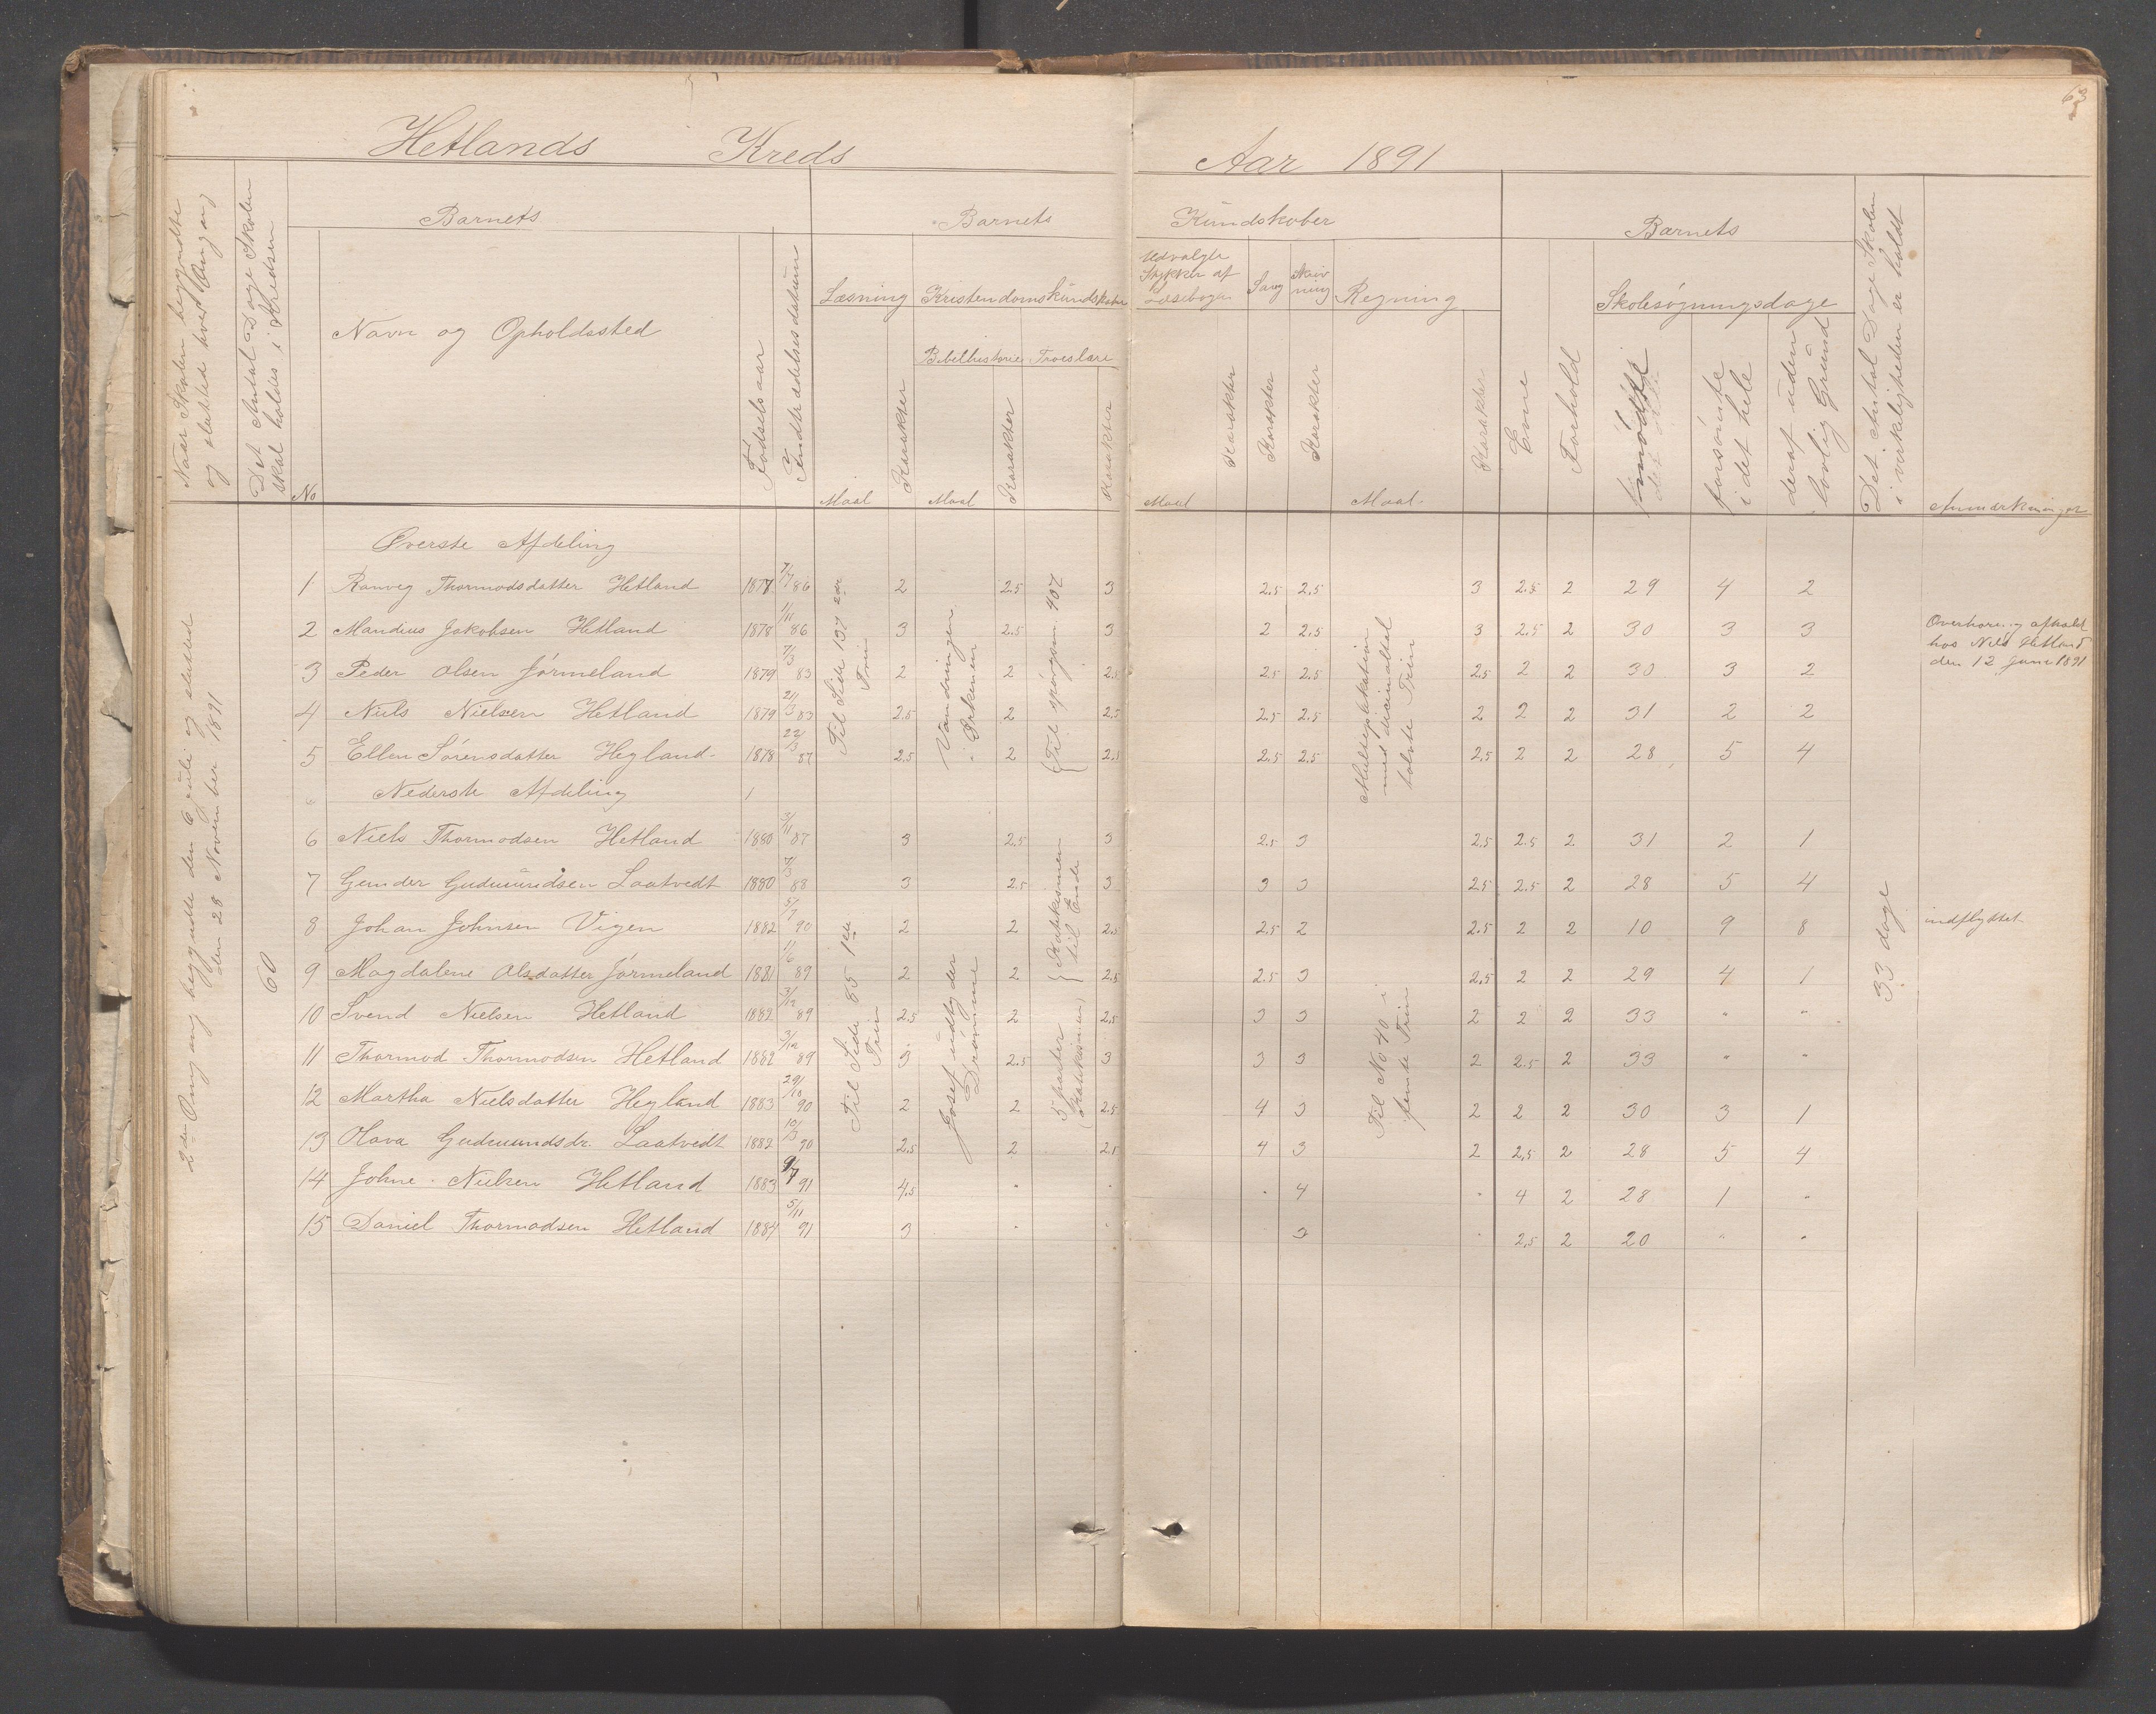 63
Hetlands Kreds Aar 1891
Naar Skolen begyndte og slutted hver Omgang
Det Antal Dage Skolen skal holdes i Kredsen
Barnets
No
Navn og Opholdssted
Fødselsaar
Indtrædelsesdatum
Barnets Kundskaber
Læsning
Maal
Karakter
Kristendomskundskaber
Bibelhistorie
Maal
Karakter
Troeslære
Karakter
Udvalgte Stykker af Læsebogen
Maal
Karakter
Sang
Karakter
Skrivning
Karakter
Regning
Maal
Karakter
Barnets
Evne
Forhold
Skolesøgningsdage
mødte
forsømte i det hele
deraf uden lovlig Grund
Det Antal Dage Skolen i virkeligheden er holdt
Anmærkninger
2den Omgang begyndte den 6 juli og slutted den 28 November 1891
60
Øverste Afdeling
1 Ranveg Thormodsdatter Hetland 1877 7/7 86 2 2.5 3 2.5 2.5 3 2.5 2 29 4 2
2 Mandius Jakobsen Hetland 1878 1/11 86 3 2.5 3 2 2.5 3 2.5 2 30 3 3
3 Peder Olsen Jørmeland 1879 7/3 83 2 2 2.5 2.5 2.5 2.5 2 2 30 3 2
4 Niels Nielsen Hetland 1879 21/3 83 2.5 2 2.5 2.5 2.5 2 2 2 31 2 2
5 Ellen Sørensdatter Hegland 1878 22/3 87 2.5 2 2.5 2.5 2.5 2.5 2 2 28 5 4
Til Side 137 2det Trin
Vandringen i Ørkenen
Til spørgsm. 407
med decimaltal
tolvte Trin
Overhøring afholdt hos Nils Hetland den 12 juni 1891
Nederste Afdeling
6 Niels Thormodsen Hetland 1880 3/11 87 3 2.5 3 2.5 3 2.5 2.5 2 31 2 1
7 Gunder Gudmundsen Laatvedt 1880 7/3 88 3 2.5 3 3 3 2.5 2.5 2 28 5 4
8 Johan Johnsen Vigen 1882 5/7 90 2 2 2.5 2.5 2 2.5 2 2 10 9 8 indflyttet
9 Magdalene Olsdatter Jørmeland 1881 11/6 89 2 2 2.5 2.5 3 2.5 2 2 29 4 1
10 Svend Nielsen Hetland 1882 3/12 89 2.5 2 2.5 3 3 2 2 2 33 " "
11 Thormod Thormodsen Hetland 1882 3/12 89 3 2.5 3 3 3 2 2.5 2 33 " "
12 Martha Nielsdatter Hegland 1883 29/10 90 2 2 2.5 4 3 2 2 2 30 3 1
13 Olava Gudmundsdr. Laatvedt 1882 10/3 90 2.5 2 2.5 4 3 2 2.5 2 28 5 4
14 Johne Nielsen Hetland 1883 9/7 91 4.5 " " " 4 " 4 2 28 1 "
15 Daniel Thormodsen Hetland 1884 5/11 91 3 " " 3 " 2.5 2 20 " "
Til Side 85 1ste Trin
Josef udtyder Drømme
Katekismen til Ende
5 parter Katekismen
Til No 40 i femte Trin
33 dage